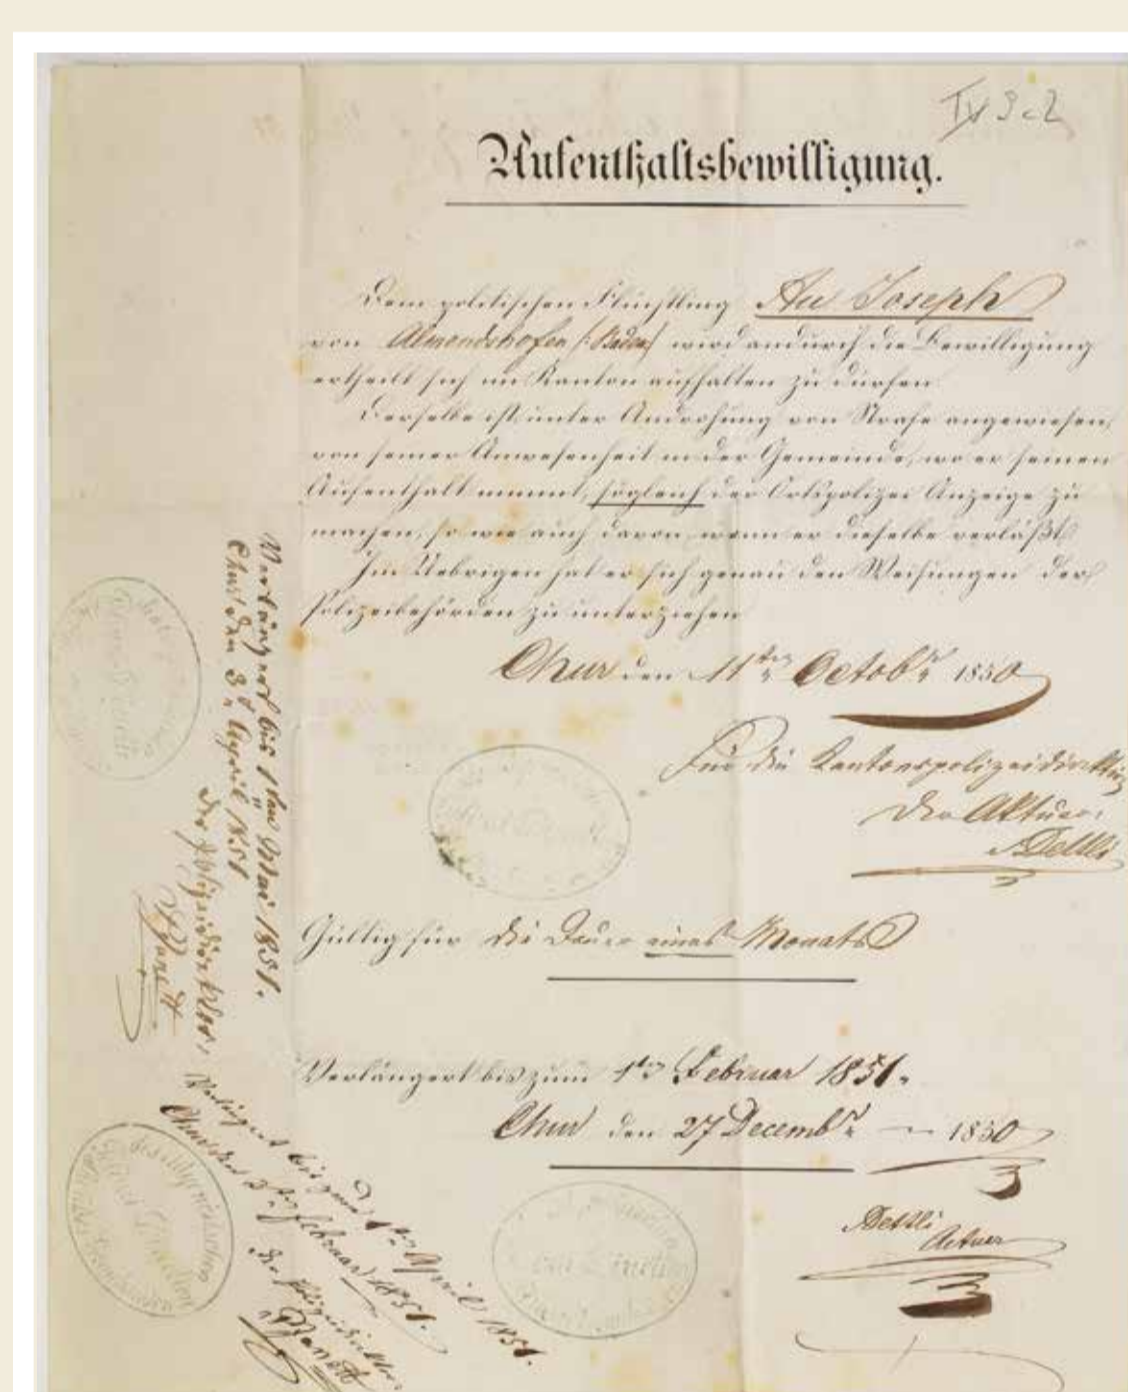 IV 3 c 2
Aufenthaltsbewilligung.
Dem politischen Flüchtling Au Joseph
von Almendshofen (: Baden) wird andurch die Bewilligung
ertheilt sich im Kanton aufhalten zu dürfen.
Derselbe ist unter Androhung von Strafe angewiesen,
von seiner Anwesenheit in der Gemeinde, wo er seinen
Aufenthalt nimmt, sogleich der Ortspolizei Anzeige zu
machen, so wie auch davon, wenn er dieselbe verläßt.
Im Uebrigen hat er sich genau den Weisungen der
Polizeibehörden zu unterziehen
Chur den 11ten Octobr 1850
Für die Kantonspolizeidirektion
Der Aktuar:
Gültig für die Dauer eines Monats
Verlängert bis zum 1ten Februar 1851.
Chur den 27 Decembr 1850
Actuar
Verlängert bis 1ten Mai 1851.
Chur den 3t April 1851
Der Polizeidirektor,
Verlängert bis zum 1ten April 1851.
Chur den Februar 1851.
Der Polizeidirektor